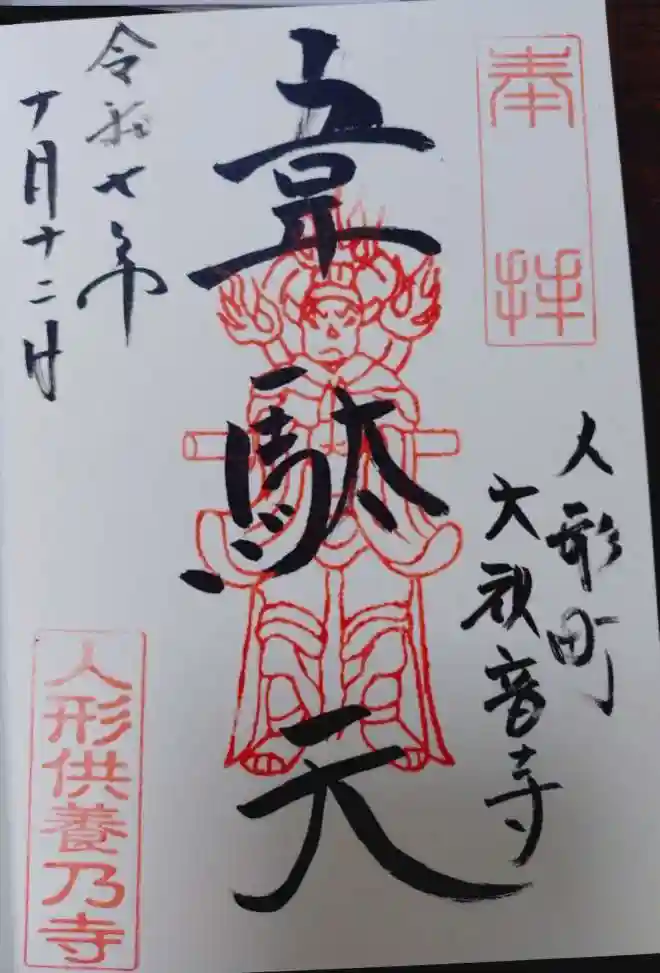 奉拝
人形町
大観音寺
韋駄天
令和七年
十月十二日
人形供養乃寺